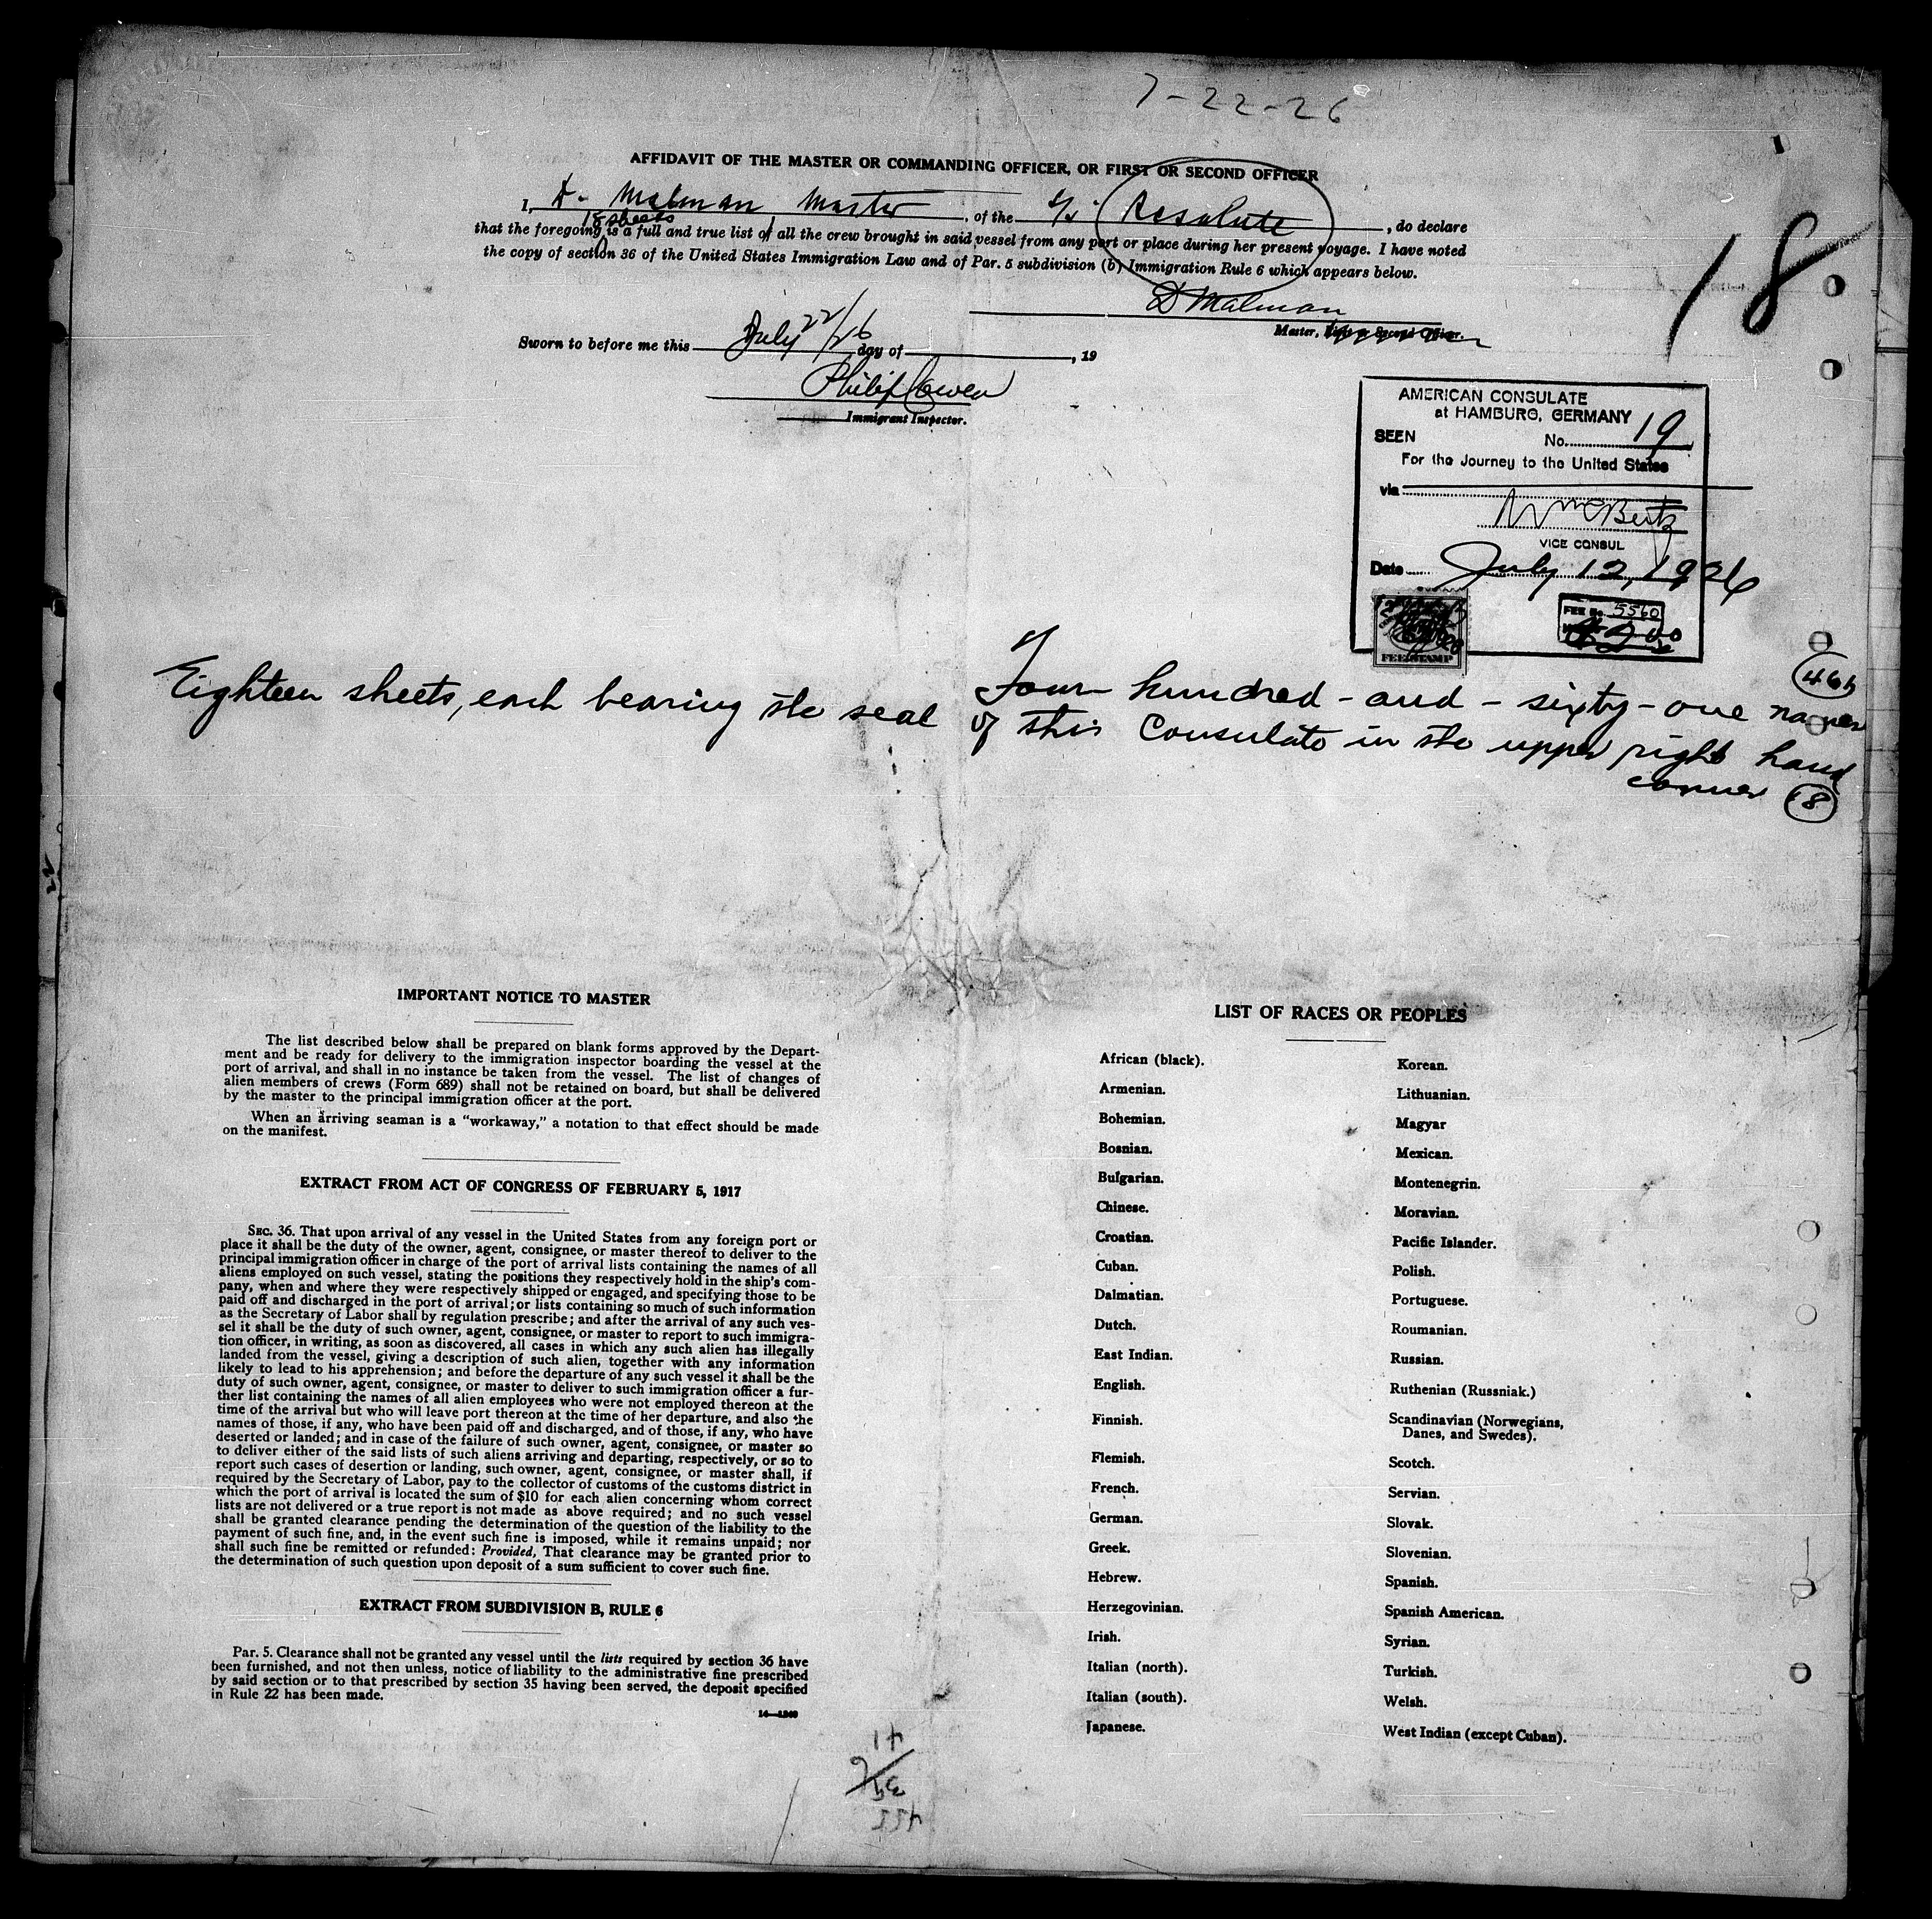 7-22-26
AFFIDAVIT OF THE MASTER OR COMMANDING OFFICER, OR FIRST OR SECOND OFFICER
I, D. Malman Master, of the S/S. Resolute, do declare
18 sheets
that the foregoing is a full and true list of all the crew brought in said vessel from any port or place during her present voyage. I have noted
the copy of section 36 of the United States Immigration Law and of Par. 5 subdivision (b) Immigration Rule 6 which appears below.
18
D Malman
Master, First or Second Officer.
Sworn to before me this July 22/26 day of , 19
Philip Cowen
Immigrant Inspector.
AMERICAN CONSULATE
at HAMBURG, GERMANY
SEEN No. 19
For the Journey to the United States
via
VICE CONSUL
Date July 12, 1926
FEE No. 5560
FEE STAMP
Four hundred-and-sixty-one names
461
Eighteen sheets, each bearing the seal of this Consulate in the upper right hand
corner 18
IMPORTANT NOTICE TO MASTER
The list described below shall be prepared on blank forms approved by the Depart-
ment and be ready for delivery to the immigration inspector boarding the vessel at the
port of arrival, and shall in no instance be taken from the vessel. The list of changes of
alien members of crews (Form 689) shall not be retained on board, but shall be delivered
by the master to the principal immigration officer at the port.
When an arriving seaman is a "workaway," a notation to that effect should be made
on the manifest.
EXTRACT FROM ACT OF CONGRESS OF FEBRUARY 5, 1917
SEC. 36. That upon arrival of any vessel in the United States from any foreign port or
place it shall be the duty of the owner, agent, consignee, or master thereof to deliver to the
principal immigration officer in charge of the port of arrival lists containing the names of all
aliens employed on such vessel, stating the positions they respectively hold in the ship's com-
pany, when and where they were respectively shipped or engaged, and specifying those to be
paid off and discharged in the port of arrival; or lists containing so much of such information
as the Secretary of Labor shall by regulation prescribe; and after the arrival of any such ves-
sel it shall be the duty of such owner, agent, consignee, or master to report to such immigra-
tion officer, in writing, as soon as discovered, all cases in which any such alien has illegally
landed from the vessel, giving a description of such alien, together with any information
likely to lead to his apprehension; and before the departure of any such vessel it shall be the
duty of such owner, agent, consignee, or master to deliver to such immigration officer a fur-
ther list containing the names of all alien employees who were not employed thereon at the
time of the arrival but who will leave port thereon at the time of her departure, and also the
names of those, if any, who have been paid off and discharged, and of those, if any, who have
deserted or landed; and in case of the failure of such owner, agent, consignee, or master so
to deliver either of the said lists of such aliens arriving and departing, respectively, or so to
report such cases of desertion or landing, such owner, agent, consignee, or master shall, if
required by the Secretary of Labor, pay to the collector of customs of the customs district in
which the port of arrival is located the sum of $10 for each alien concerning whom correct
lists are not delivered or a true report is not made as above required; and no such vessel
shall be granted clearance pending the determination of the question of the liability to the
payment of such fine, and, in the event such fine is imposed, while it remains unpaid; nor
shall such fine be remitted or refunded: Provided, That clearance may be granted prior to
the determination of such question upon deposit of a sum sufficient to cover such fine.
EXTRACT FROM SUBDIVISION B, RULE 6
Par. 5. Clearance shall not be granted any vessel until the lists required by section 36 have
been furnished, and not then unless, notice of liability to the administrative fine prescribed
by said section or to that prescribed by section 35 having been served, the deposit specified
in Rule 22 has been made.
LIST OF RACES OR PEOPLES
African (black).
Armenian.
Bohemian.
Bosnian.
Bulgarian.
Chinese.
Croatian.
Cuban.
Dalmatian.
Dutch.
East Indian.
English.
Finnish.
Flemish.
French.
German.
Greek.
Hebrew.
Herzegovinian.
Irish.
Italian (north).
Italian (south).
Japanese.
Korean.
Lithuanian.
Magyar
Mexican.
Montenegrin.
Moravian.
Pacific Islander.
Polish.
Portuguese.
Roumanian.
Russian.
Ruthenian (Russniak.)
Scandinavian (Norwegians,
Danes, and Swedes).
Scotch.
Servian.
Slovak.
Slovenian.
Spanish.
Spanish American.
Syrian.
Turkish.
Welsh.
West Indian (except Cuban).